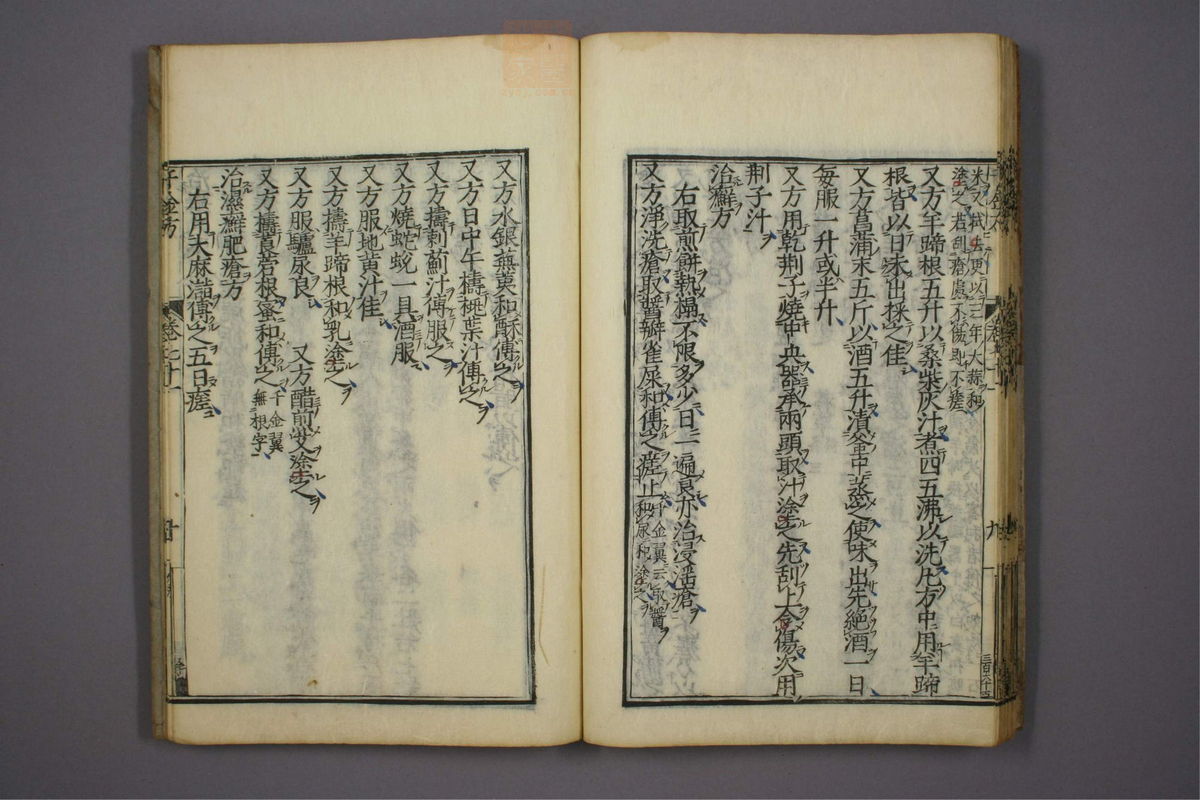 米又拭去更以三年大蒜和
塗之若刮瘡處不傷即不瘥
又方羊蹄根五升以桑柴灰汁煮四五沸以洗㞮方中用羊蹄
根皆以日未出採之佳
又方菖蒲末五斤以酒五升漬釜中蒸之使味出先絕酒一日
每服一升或半升
又方用乾荊子燒中央器承兩頭取汁塗之先刮上令傷次用
荊子汁
治癬方
右取煎餅熱搨不限多少日一遍良亦治浸淫瘡
又方淨洗瘡取醬瓣雀屎和傅之瘥止千金翼云取醬
和尿和塗之
又方水銀蕪荑和酥傅之
又方日中午擣桃葉汁傅之
又方擣刺薊汁傅服之
又方燒蛇蛻一具酒服
又方服地黃汁佳
又方擣羊蹄根和乳塗之
又方服驢尿良 又方醋煎艾塗之
又方擣莨菪根蜜和傅之千金翼
無根字
治濕癬肥瘡方
右用大麻㴉傅之五日瘥
千金方 卷二十二 廿
九